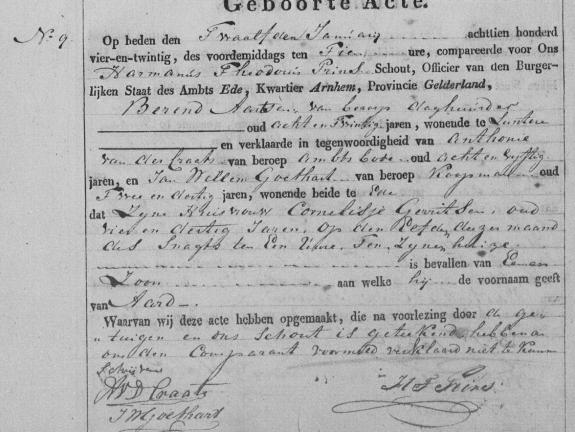 Geboorte Acte.
No. 9.
Op heden den Twaalfden Januarij achttien honderd
vier-en-twintig, des voordemiddags ten Tien ure, compareerde voor Ons
Harmanus Theodorus Prins Schout, Officier van den Burger-
lijken Staat des Ambts Ede, Kwartier Arnhem, Provincie Gelderland,
Berend Aartsen van beroep daghuurder
oud acht en Twintig jaren, wonende te Lunteren
en verklaarde in tegenwoordigheid van Anthonie
van der Craats van beroep Ambts bode oud acht en vyftig
jaren, en Jan Willem Goethart van beroep Koopman oud
Twee en dertig jaren, wonende beide te Ede
dat Zyne Huisvrouw Cornelisje Gerritsen, oud
vier en dertig Jaren, op den Elfden dezer maand
des Snagts ten Een Uure Ten Zynen huize
is bevallen van Eenen
Zoon aan welke hij de voornaam geeft
van Aard
Waarvan wij deze acte hebben opgemaakt, die na voorlezing door de ge-
tuigen en ons Schout is geteekend hebbende
ons den Comparant voornoemd verklaard niet te kunnen
Schrijven
AVD Craats
H T Prins
JW Goethart